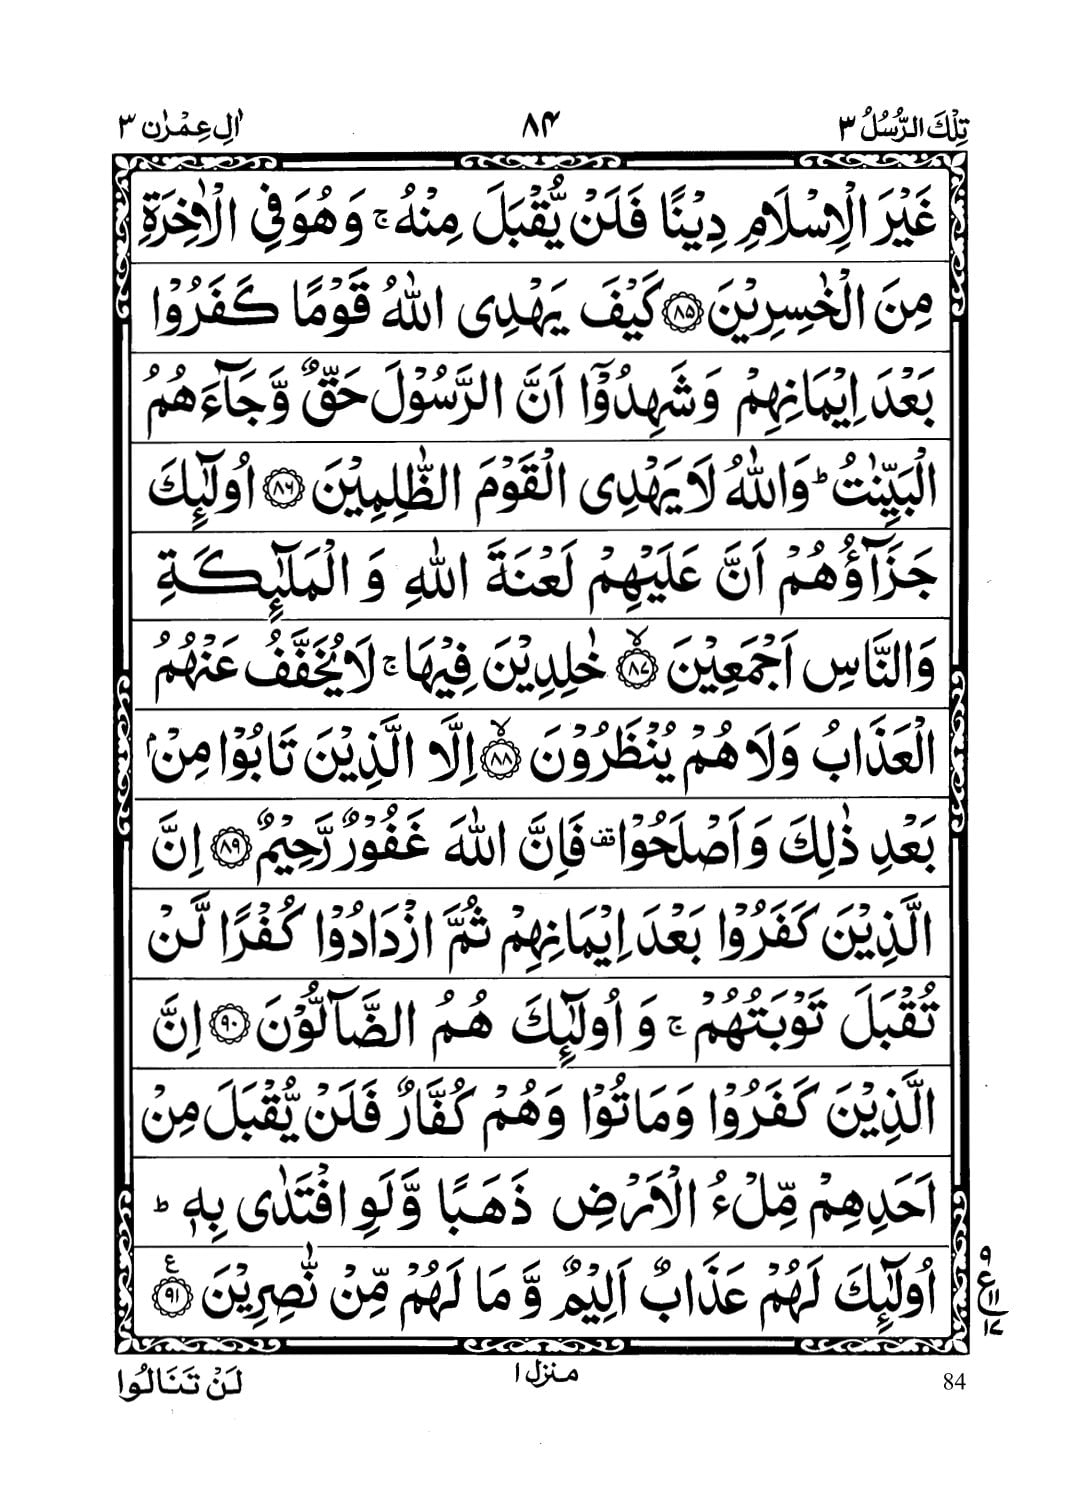 تِلْكَ الرُّسُلُ ۳
۸۴
اٰلِ عِمْرٰن ۳
غَيْرَ الْاِسْلَامِ دِيْنًا فَلَنْ يُّقْبَلَ مِنْهُ ۚ وَهُوَ فِي الْاٰخِرَةِ
مِنَ الْخٰسِرِيْنَ ۝۸۵ كَيْفَ يَهْدِى اللّٰهُ قَوْمًا كَفَرُوْا
بَعْدَ اِيْمَانِهِمْ وَشَهِدُوْۤا اَنَّ الرَّسُوْلَ حَقٌّ وَّجَآءَهُمُ
الْبَيِّنٰتُ ؕ وَاللّٰهُ لَا يَهْدِى الْقَوْمَ الظّٰلِمِيْنَ ۝۸۶ اُولٰٓئِكَ
جَزَآؤُهُمْ اَنَّ عَلَيْهِمْ لَعْنَةَ اللّٰهِ وَ الْمَلٰٓئِكَةِ
وَالنَّاسِ اَجْمَعِيْنَ ۝۸۷ۙ خٰلِدِيْنَ فِيْهَا ۚ لَا يُخَفَّفُ عَنْهُمُ
الْعَذَابُ وَلَا هُمْ يُنْظَرُوْنَ ۝۸۸ۙ اِلَّا الَّذِيْنَ تَابُوْا مِنْۢ
بَعْدِ ذٰلِكَ وَ اَصْلَحُوْا ۟ قف فَاِنَّ اللّٰهَ غَفُوْرٌ رَّحِيْمٌ ۝۸۹ اِنَّ
الَّذِيْنَ كَفَرُوْا بَعْدَ اِيْمَانِهِمْ ثُمَّ ازْدَادُوْا كُفْرًا لَّنْ
تُقْبَلَ تَوْبَتُهُمْ ۚ وَ اُولٰٓئِكَ هُمُ الضَّآلُّوْنَ ۝۹۰ اِنَّ
الَّذِيْنَ كَفَرُوْا وَمَاتُوْا وَهُمْ كُفَّارٌ فَلَنْ يُّقْبَلَ مِنْ
اَحَدِهِمْ مِّلْءُ الْاَرْضِ ذَهَبًا وَّلَوِ افْتَدٰى بِهٖ ؕ
اُولٰٓئِكَ لَهُمْ عَذَابٌ اَلِيْمٌ وَّ مَا لَهُمْ مِّنْ نّٰصِرِيْنَ ۝۹۱ ع
۹
ع ۱۱
۱۷
لَنْ تَنَالُوا
منزل ۱
84